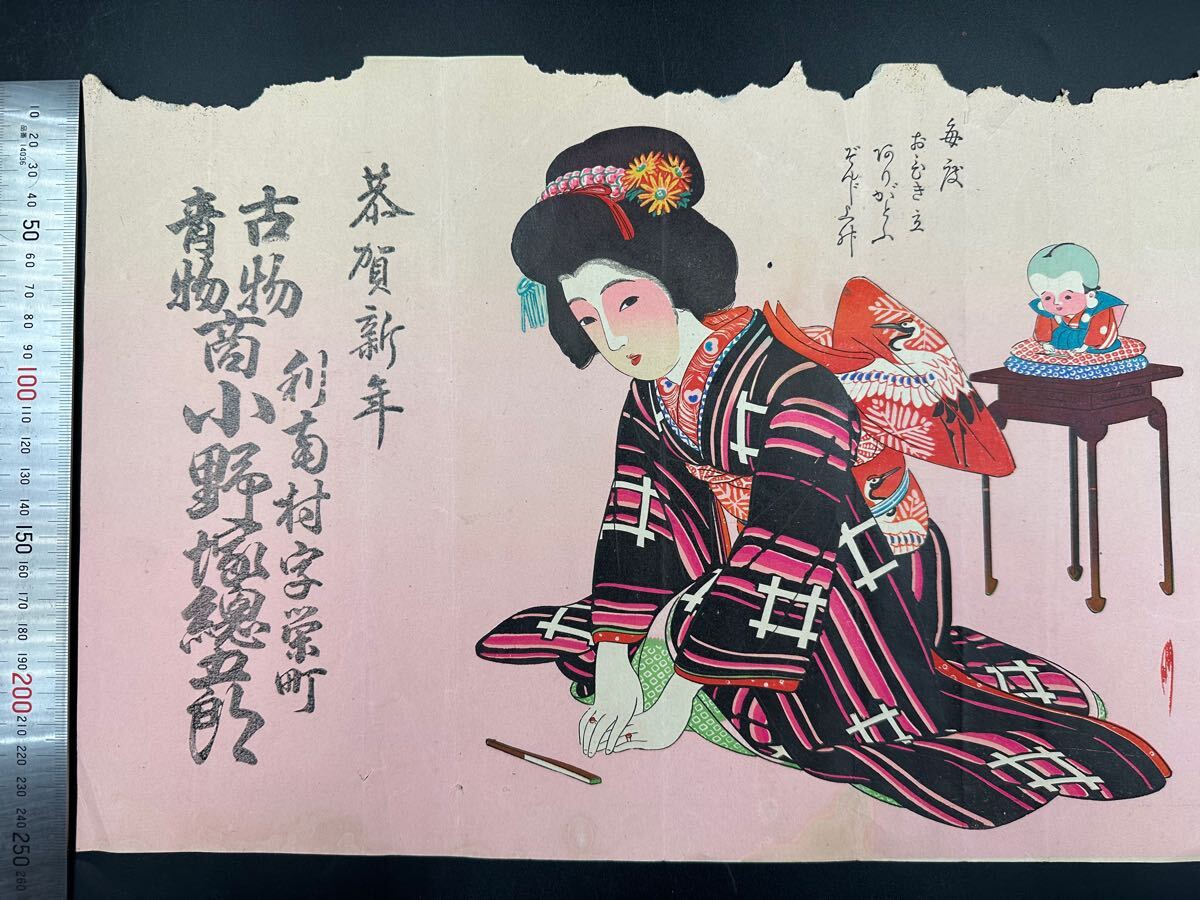 毎度
おひき立
ありがとふ
ぞんじ上升
恭賀新年
利南村字栄町
古物
青物
商小野塚總五郎
品番 14036
10
20
30
40
50
60
70
80
90
100
110
120
130
140
150
160
170
180
190
200
210
220
230
240
250
260